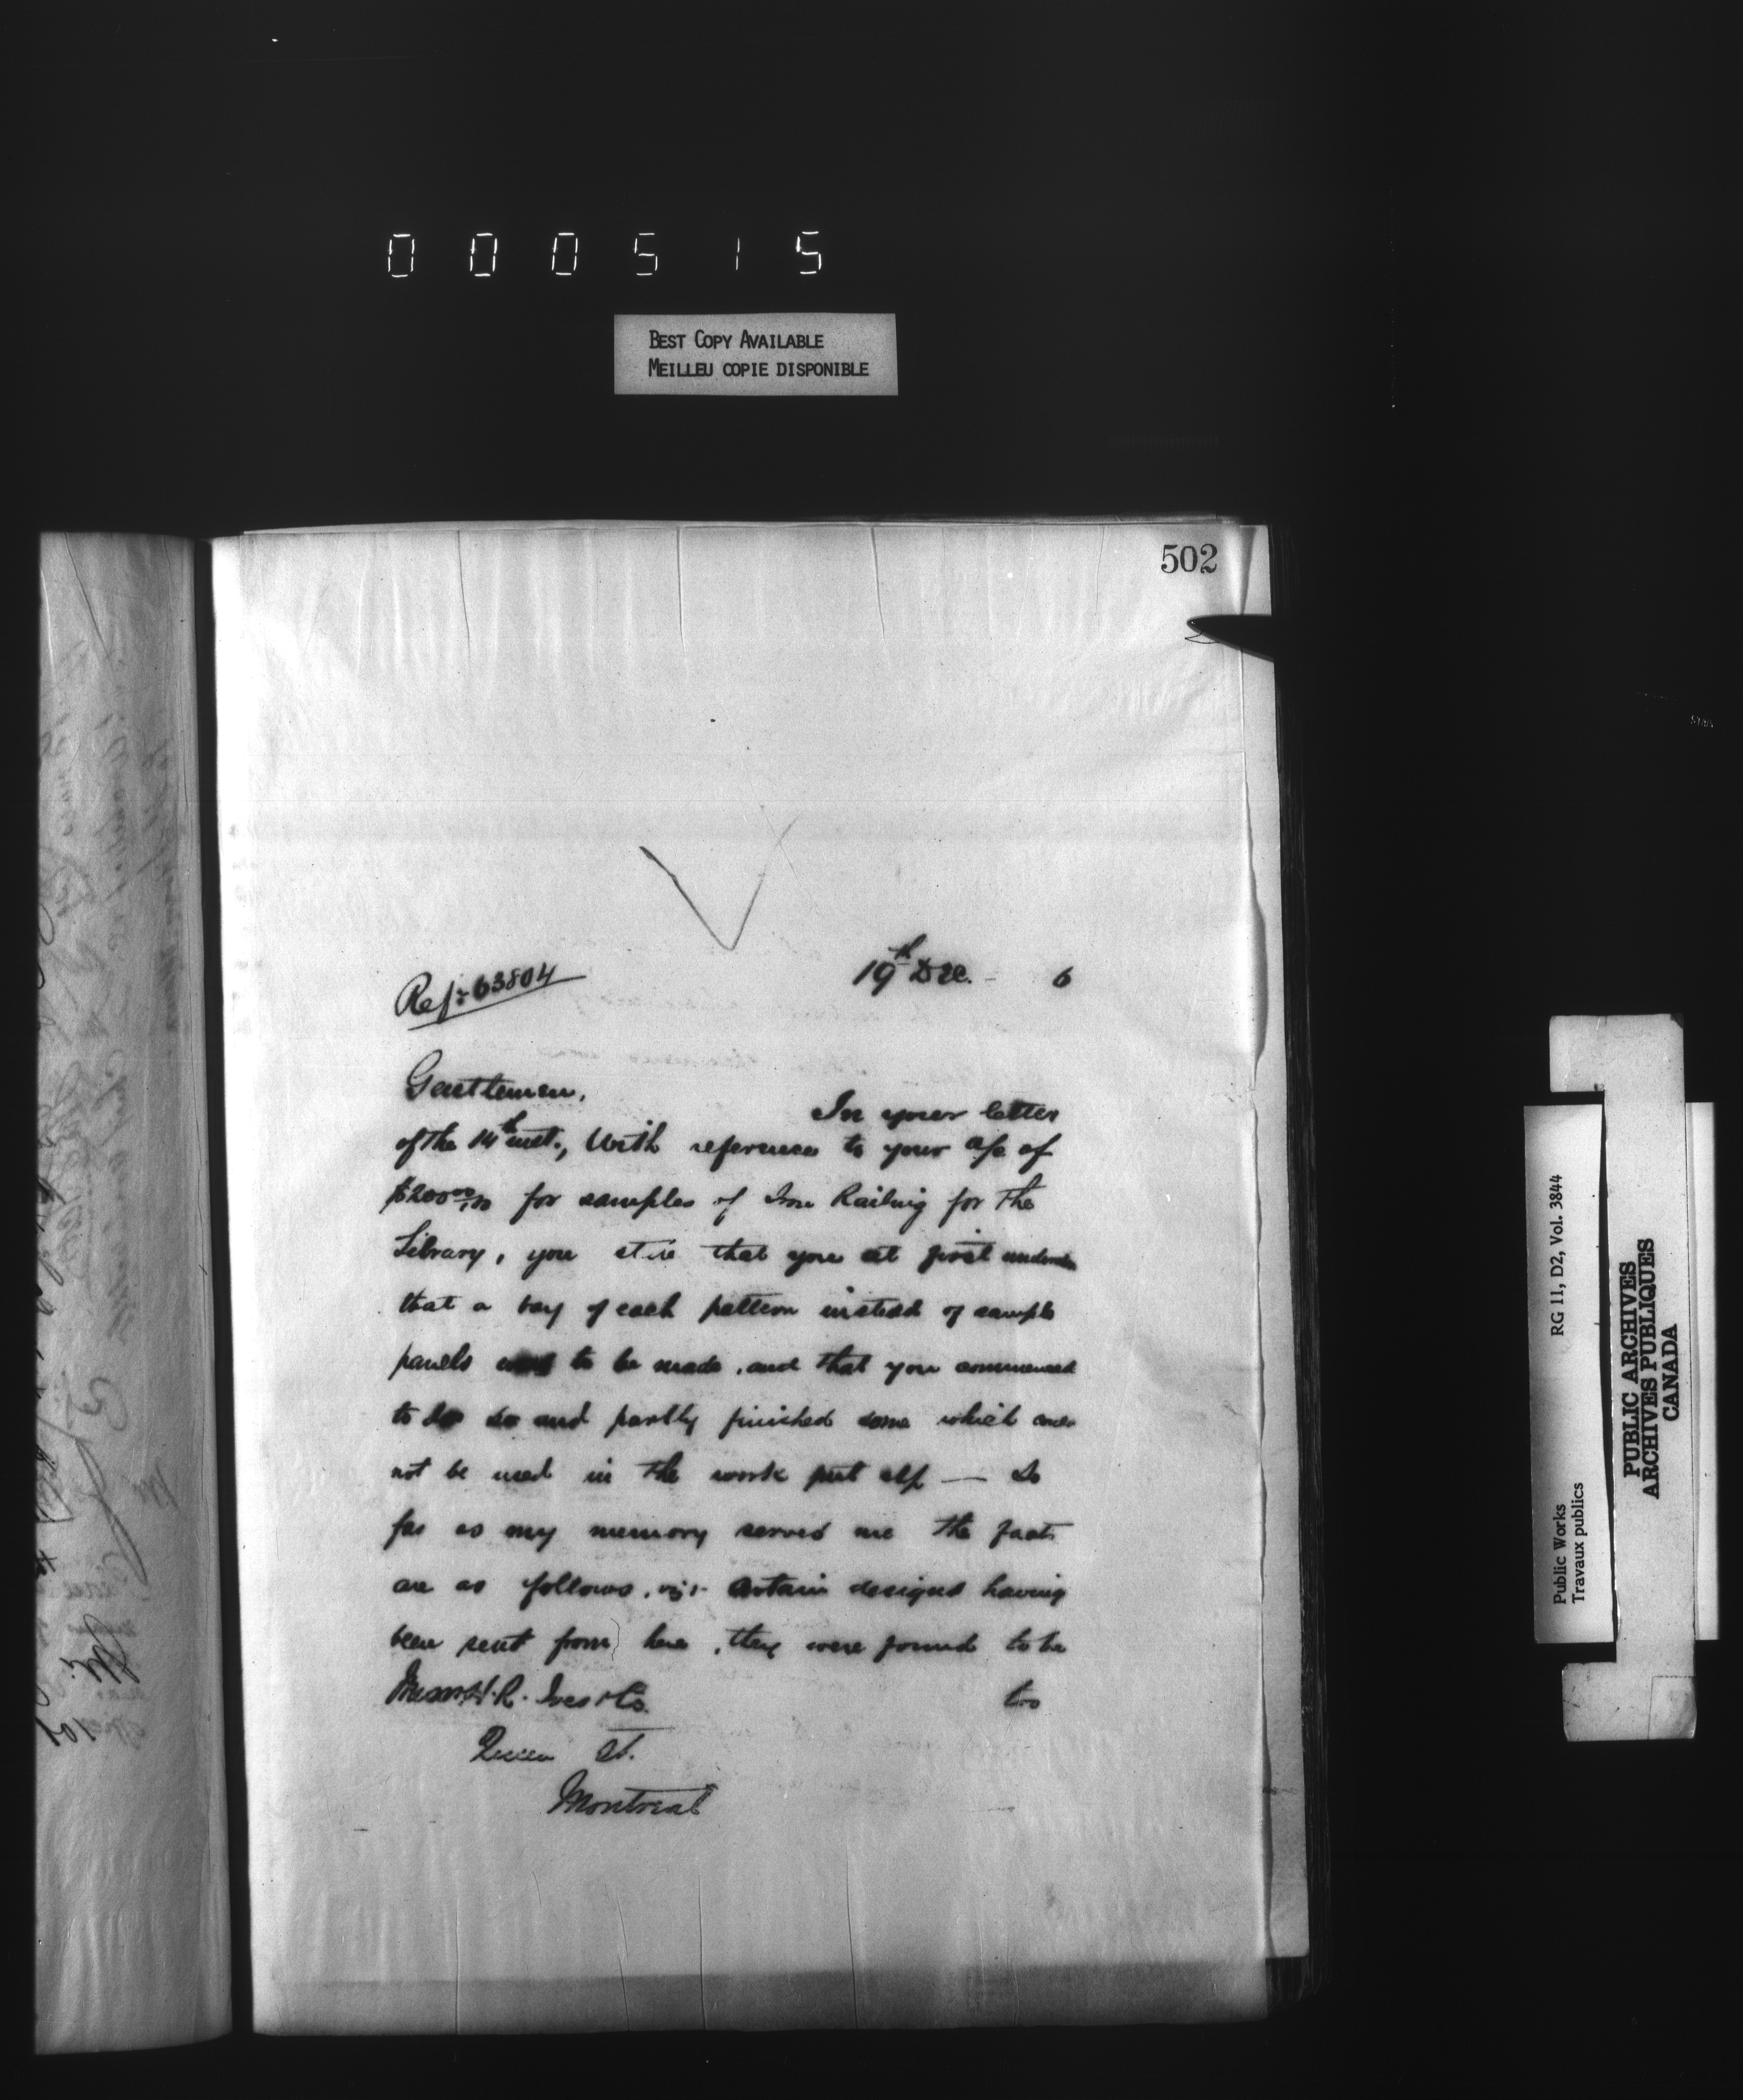 000515
BEST COPY AVAILABLE
MEILLEU COPIE DISPONIBLE
502
19th Dec. - 6
Ref: 63804
Gentlemen,
In your letter
of the 14th inst., With reference to your a/c of
$200 00/100 for samples of Iron Railing for the
Library, you state that you at first
that a bay of each pattern instead of sample
panels to be made, and that you commenced
to do so and partly finished some which
not be used in the work — So
far as my memory serves me the facts
are as follows, viz:- Certain designs having
been sent from here, they were found to be
Messrs H. R. Ives & Co. too
Queen St.
Montreal
Public Works
Travaux publics
RG 11, D2, Vol. 3844
PUBLIC ARCHIVES
ARCHIVES PUBLIQUES
CANADA